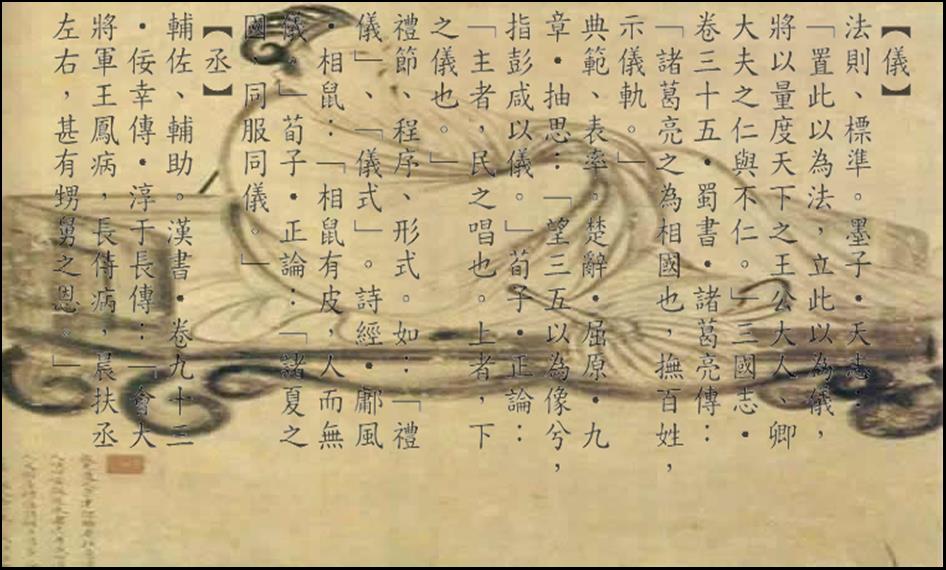 【儀】
法則、標準。墨子•天志:
「置此以為法,立此以為儀,
將以量度天下之王公大人、卿
大夫之仁與不仁。」三國志•
卷三十五•蜀書•諸葛亮傳:
「諸葛亮之為相國也,撫百姓,
示儀軌。」
典範、表率。楚辭•屈原•九
章•抽思:「望三五以為像兮,
指彭咸以儀。」荀子•正論:
「主者,民之唱也。上者,下
之儀也。」
禮節、程序、形式。如:「禮
儀」、「儀式」。詩經•鄘風
•相鼠:「相鼠有皮,人而無
儀。」荀子•正論:「諸夏之
國,同服同儀。」
【丞】
輔佐、輔助。漢書•卷九十三
•佞幸傳•淳于長傳:「會大
將軍王鳳病,長侍病,晨扶丞
左右,甚有甥舅之恩。」